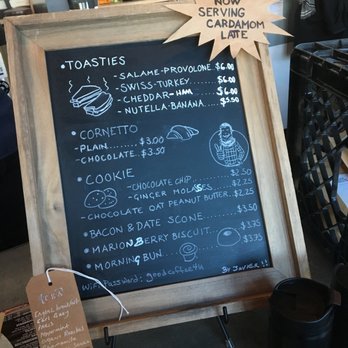 NOW
SERVING
CARDAMOM
LATTE
•TOASTIES
- SALAME-PROVOLONE $6.00
- SWISS-TURKEY $6.00
- CHEDDAR-HAM $6.00
- NUTELLA-BANANA $5.50
•CORNETTO
- PLAIN $3.00
- CHOCOLATE $3.50
•COOKIE
- CHOCOLATE CHIP $2.50
- GINGER MOLASSES $2.25
- CHOCOLATE OAT PEANUT BUTTER $2.25
•BACON & DATE SCONE $3.50
•MARIONBERRY BISCUIT $3.75
•MORNING BUN $3.75
WIFI Password: goodcoffee411
BY JAVIER !!
Earl Grey
Paris
Peppermint